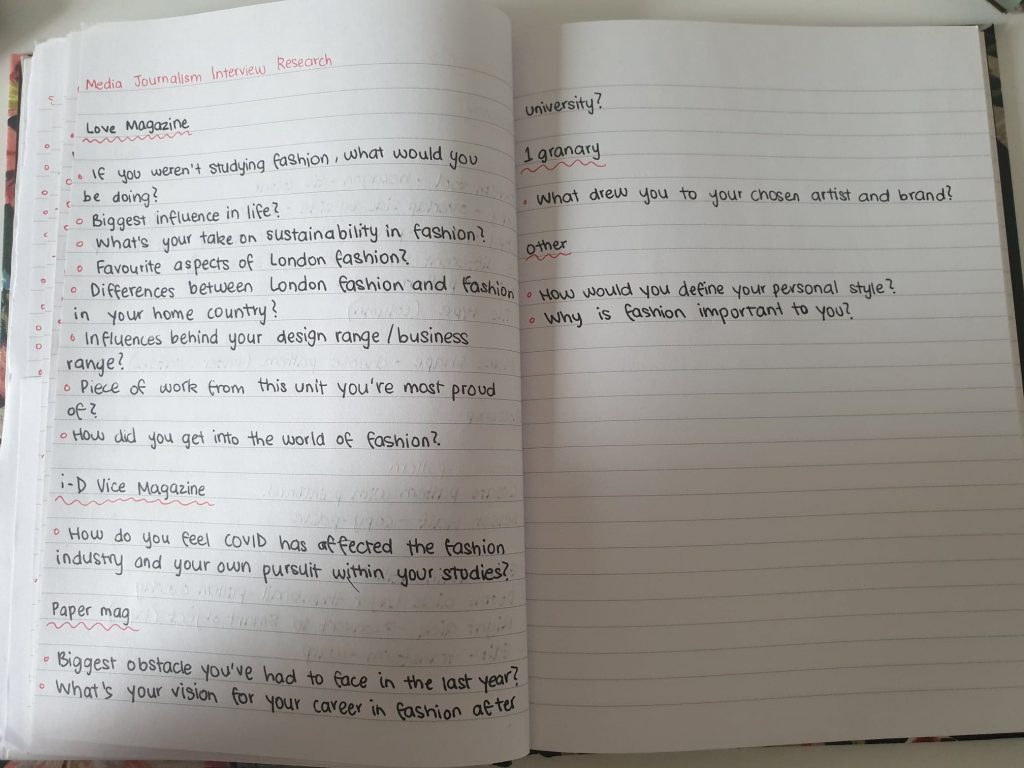 Media Journalism Interview Research
Love Magazine
• If you weren't studying fashion, what would you
be doing?
• Biggest influence in life?
• What's your take on sustainability in fashion?
• Favourite aspects of London fashion?
• Differences between London fashion and fashion
in your home country?
• Influences behind your design range / business
range?
• Piece of work from this unit you're most proud
of?
• How did you get into the world of fashion?
i-D Vice Magazine
• How do you feel COVID has affected the fashion
industry and your own pursuit within your studies?
Paper mag
• Biggest obstacle you've had to face in the last year?
• What's your vision for your career in fashion after
university?
1 granary
• What drew you to your chosen artist and brand?
other
• How would you define your personal style?
• Why is fashion important to you?